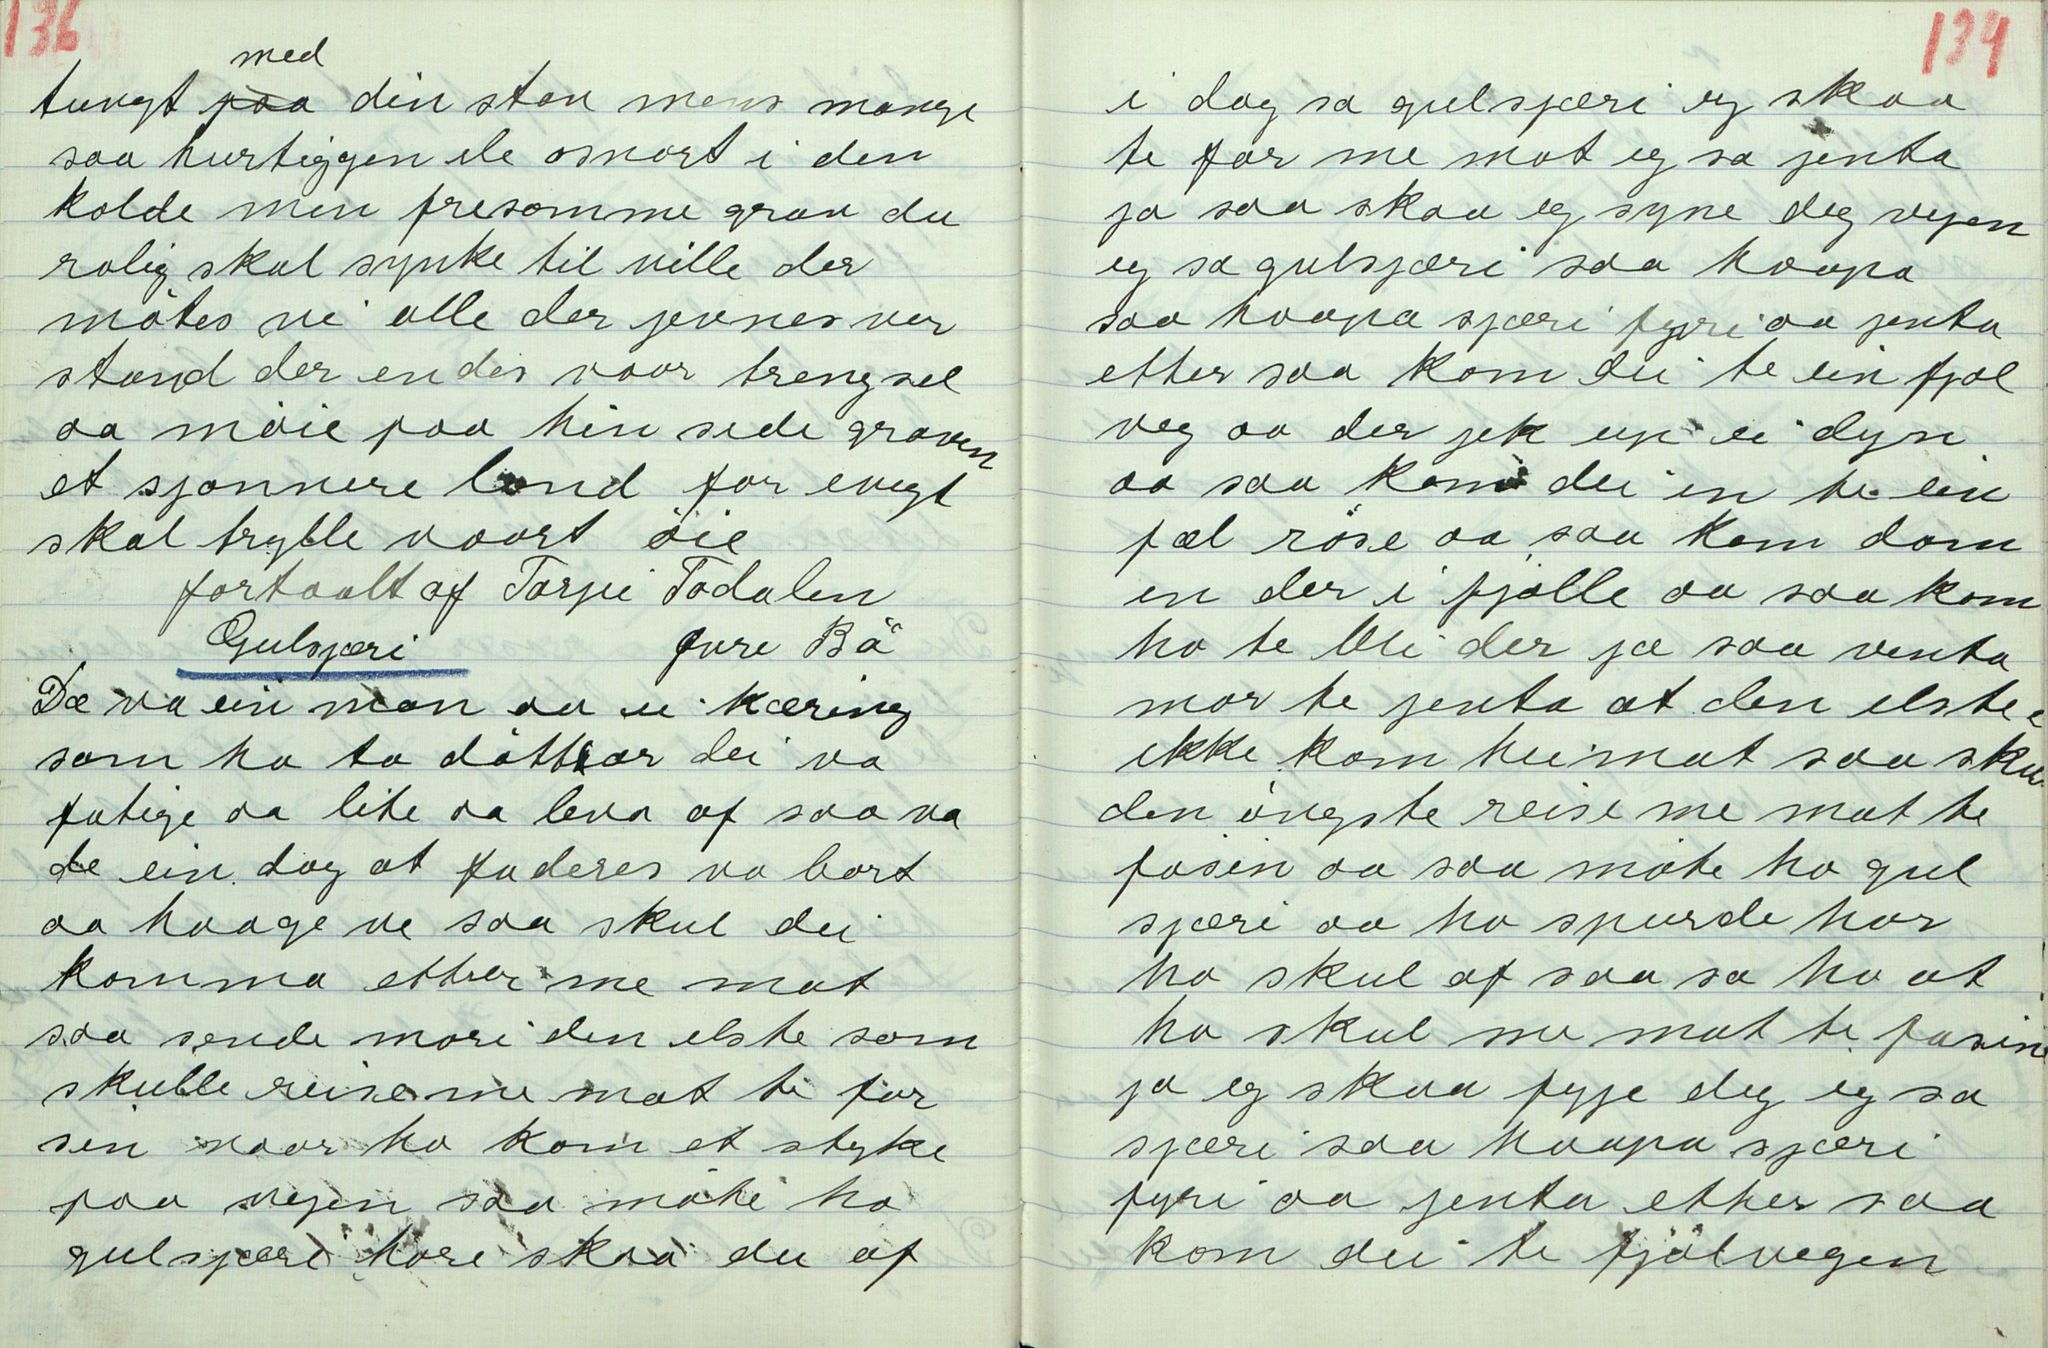 136
med
tungt paa din stav mens mange
saa hurtiggen ile snart i den
kolde men fresomme grav du
rolig skal synke til ville der
mötes vi alle der jevnes ver
stand der endes vaar trengsel
aa möie paa hin side graven
et sjönnere land for evegt
skal trylle vaart öie
fortaalt af Torjei Todalen
Gulsjæri övre Bö
Dæ va ein man aa ei kæring
som ha to döttrar dei va
fatige aa lite aa leva af saa va
de ein dag at faderes va bort
aa haage ve saa skul dei
komma etter me mat
saa sende mori den elste som
skulle reise me mat te far
sin naar ho kom et styke
paa vegen saa möte ho
gulsjæri hore skaa du af
134
i dag sa gulsjæri eg skaa
te far me mat eg sa jenta
ja saa skaa eg syne deg vegen
eg sa gulsjæri saa haapa
saa haapa sjæri fyri aa jenta
etter saa kom dei te ein fjöl
veg aa der jek up ei dyn
aa saa kom dei in te ein
fæl röse aa saa kom dom
en der i fjölle aa saa kom
ho te bli der ja saa venta
mor te jenta at den elste
ikke kom heimat saa sku
den öngste reise me mat te
fasin aa saa möte ho gul
sjæri aa ho spurde hor
ho skul af saa sa ho at
ho skul me mat te fasin
ja eg skaa fyje deg eg sa
sjæri saa haapa sjæri
fyri aa jenta etter saa
kom dei te fjölvegen